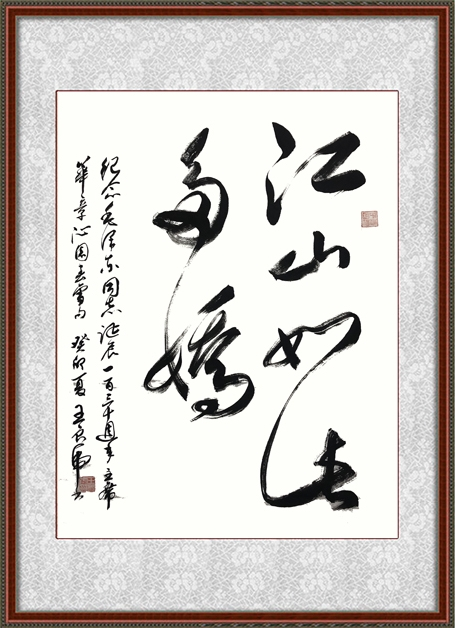 江山如此
多嬌
纪念毛泽东同志诞辰一百三十週年主席
華章沁园春雪句 癸卯夏 王